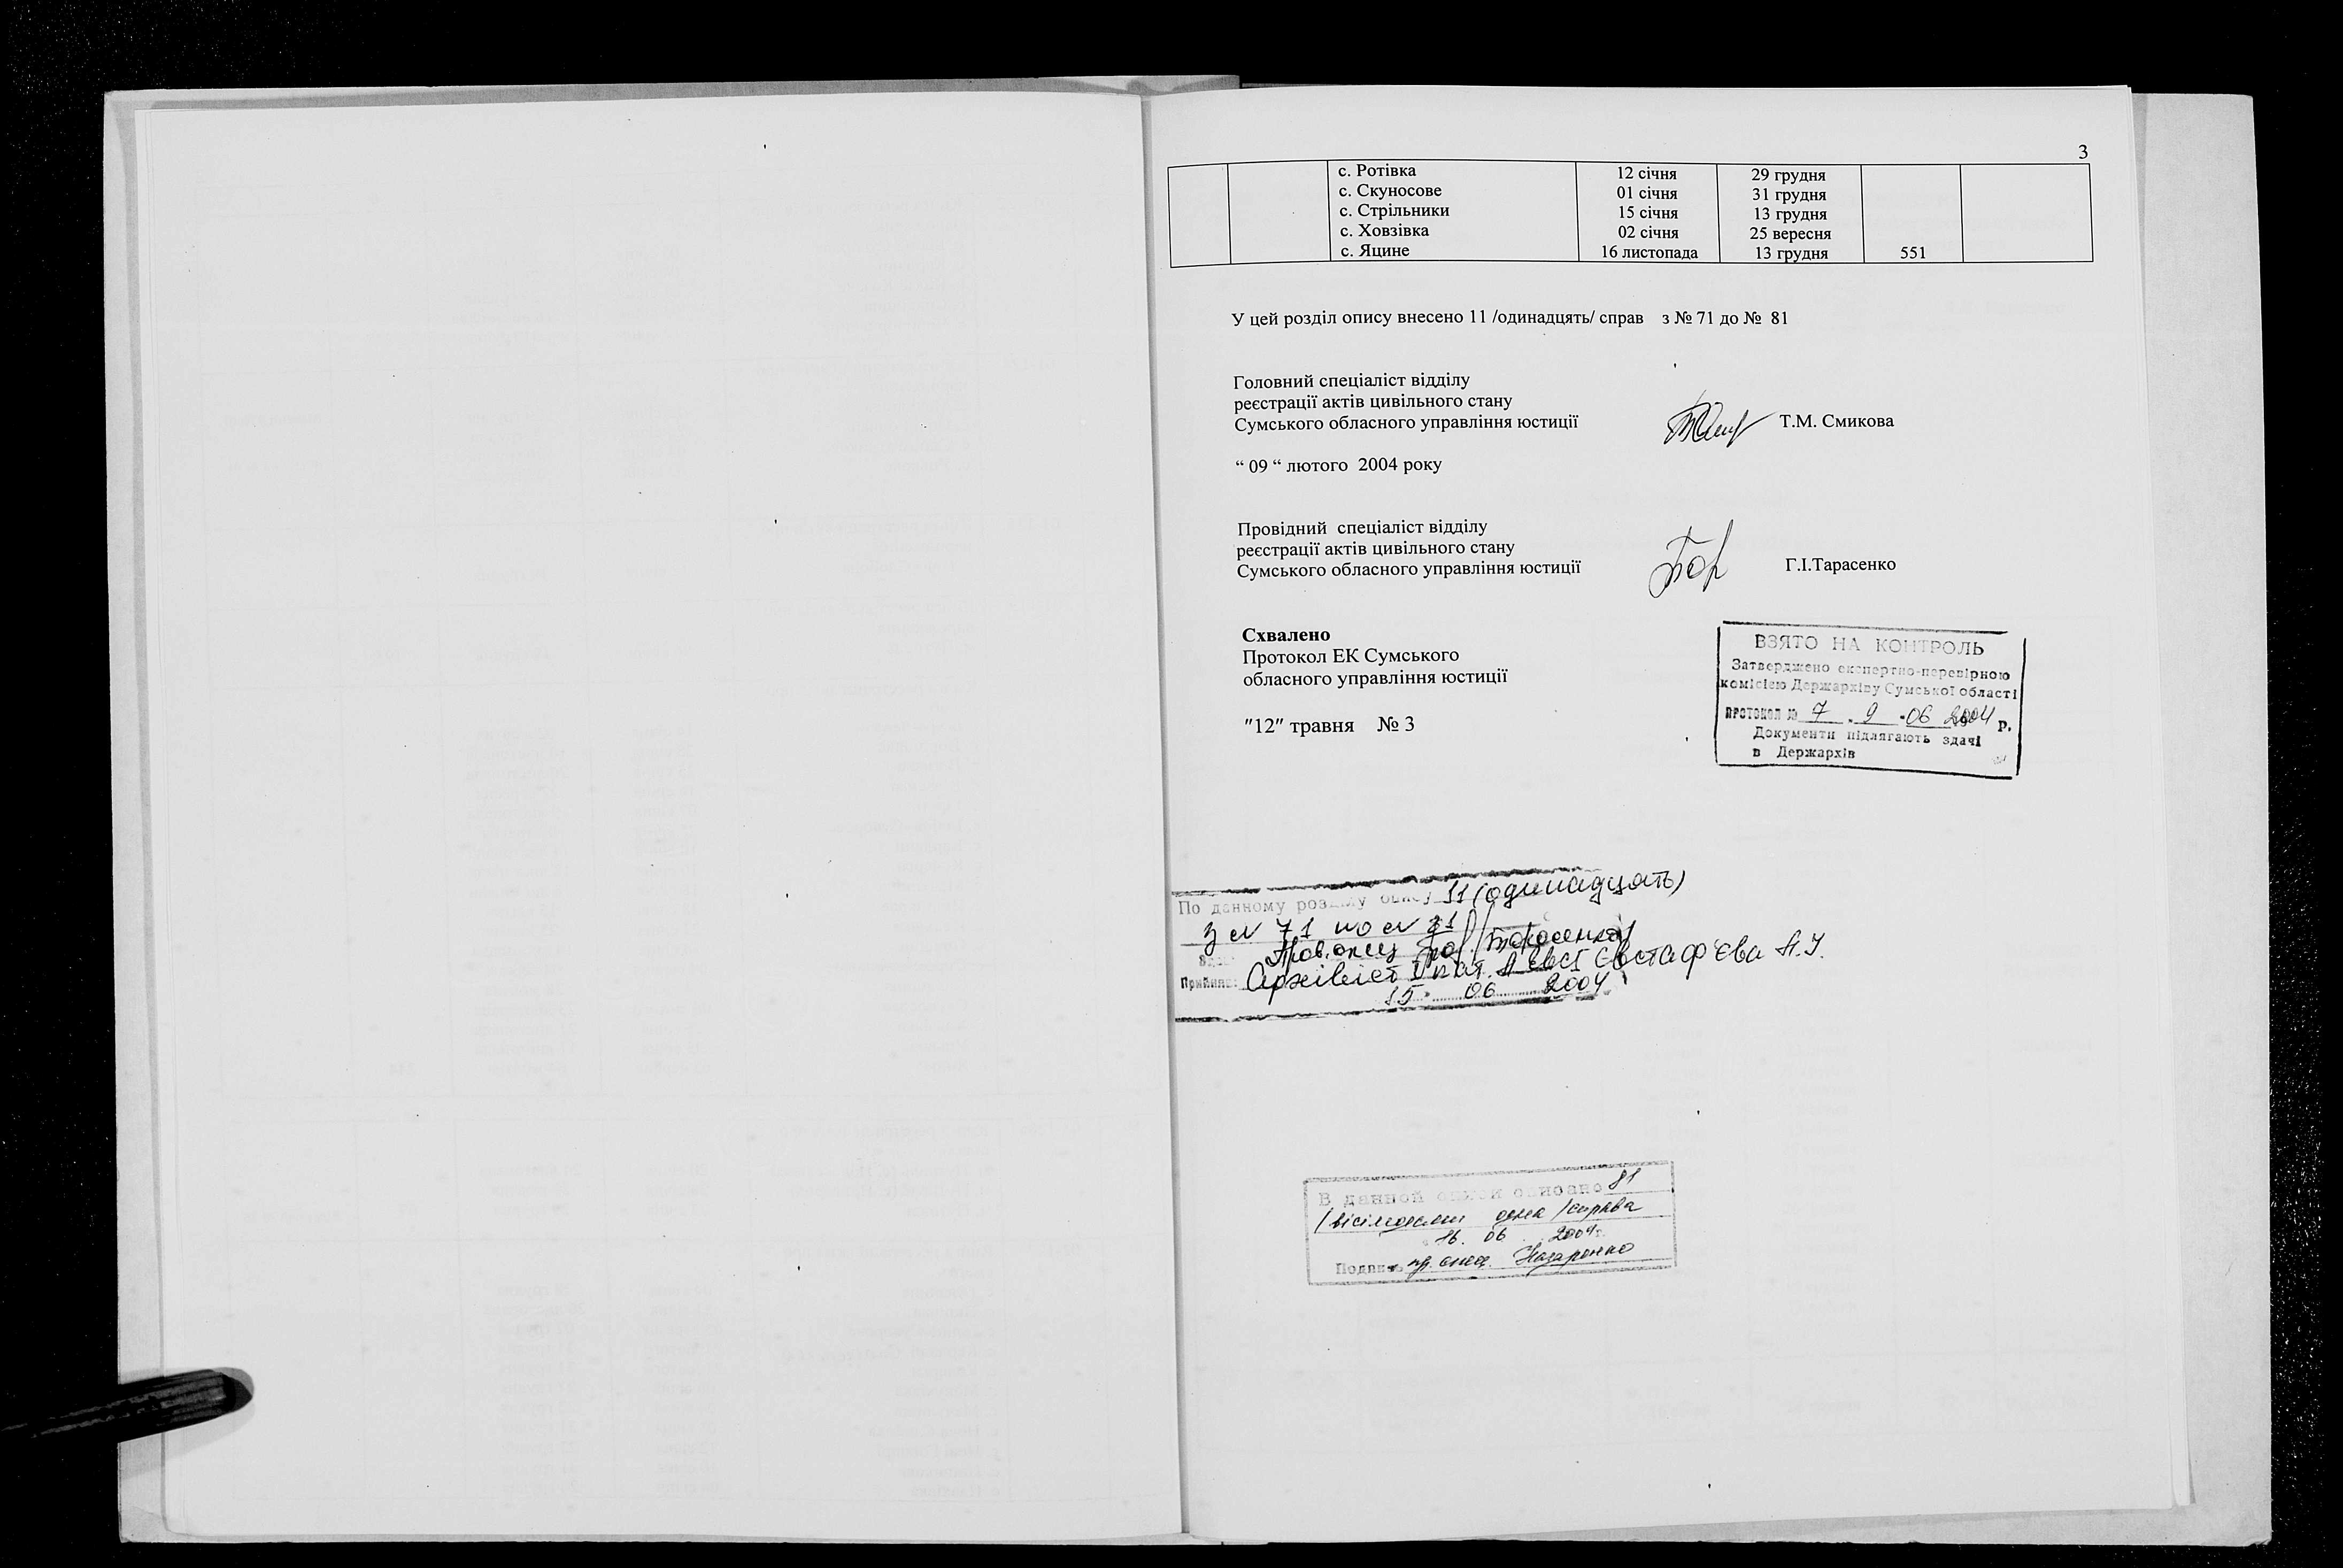 3
с. Ротівка 12 січня 29 грудня
с. Скуносове 01 січня 31 грудня
с. Стрільники 15 січня 13 грудня
с. Ховзівка 02 січня 25 вересня
с. Яцине 16 листопада 13 грудня 551
У цей розділ опису внесено 11 /одинадцять/ справ з № 71 до № 81
Головний спеціаліст відділу
реєстрації актів цивільного стану
Сумського обласного управління юстиції Т.М. Смикова
“ 09 “ лютого 2004 року
Провідний спеціаліст відділу
реєстрації актів цивільного стану
Сумського обласного управління юстиції Г.І.Тарасенко
Схвалено
Протокол ЕК Сумського
обласного управління юстиції
"12" травня № 3
ВЗЯТО НА КОНТРОЛЬ
Затверджено експертно-перевірною
комісією Держархіву Сумської області
протокол № 7 . 9 . 06 2004 р.
Документи підлягають здачі
в Держархів
По данному розділу опису 11 (одинадцять)
з № 71 по № 81
Пров. спец /Тарасенко/
Прийняв: Архівіст І кат. Євстаф'єва А.І.
15 06 2004
В данной описи описано 81
/вісімдесят одна/ справа
16. 06 2004 г.
Подпись пр. спец. Назаренко